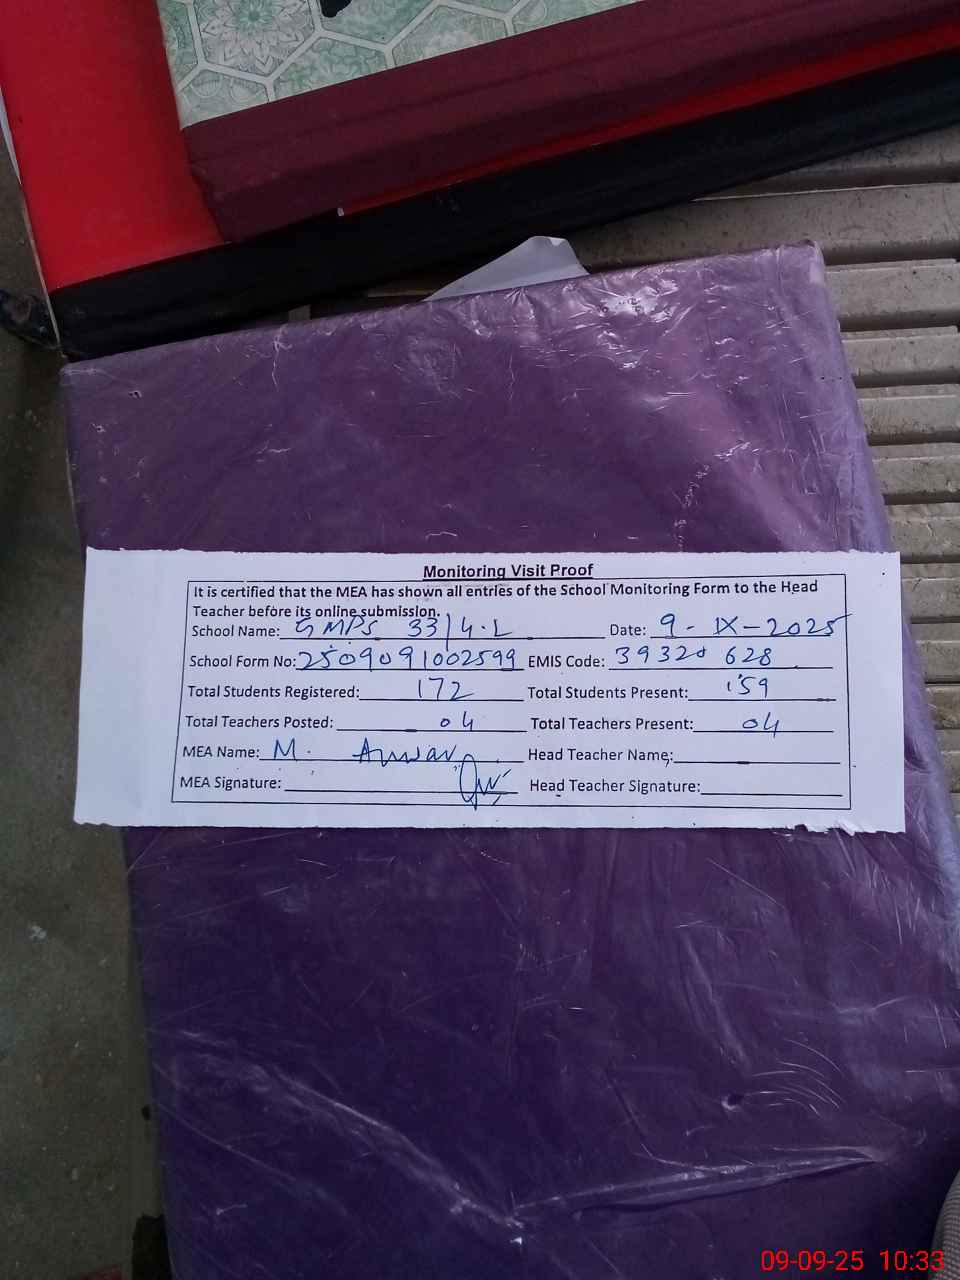 Monitoring Visit Proof
It is certified that the MEA has shown all entries of the School Monitoring Form to the Head
Teacher before its online submission.
School Name: GMPS 33/4-L Date: 9-IX-2025
School Form No: 2509091002599 EMIS Code: 39320628
Total Students Registered: 172 Total Students Present: 159
Total Teachers Posted: 04 Total Teachers Present: 04
MEA Name: M. Anwar Head Teacher Name:
MEA Signature: Head Teacher Signature:
09-09-25 10:33